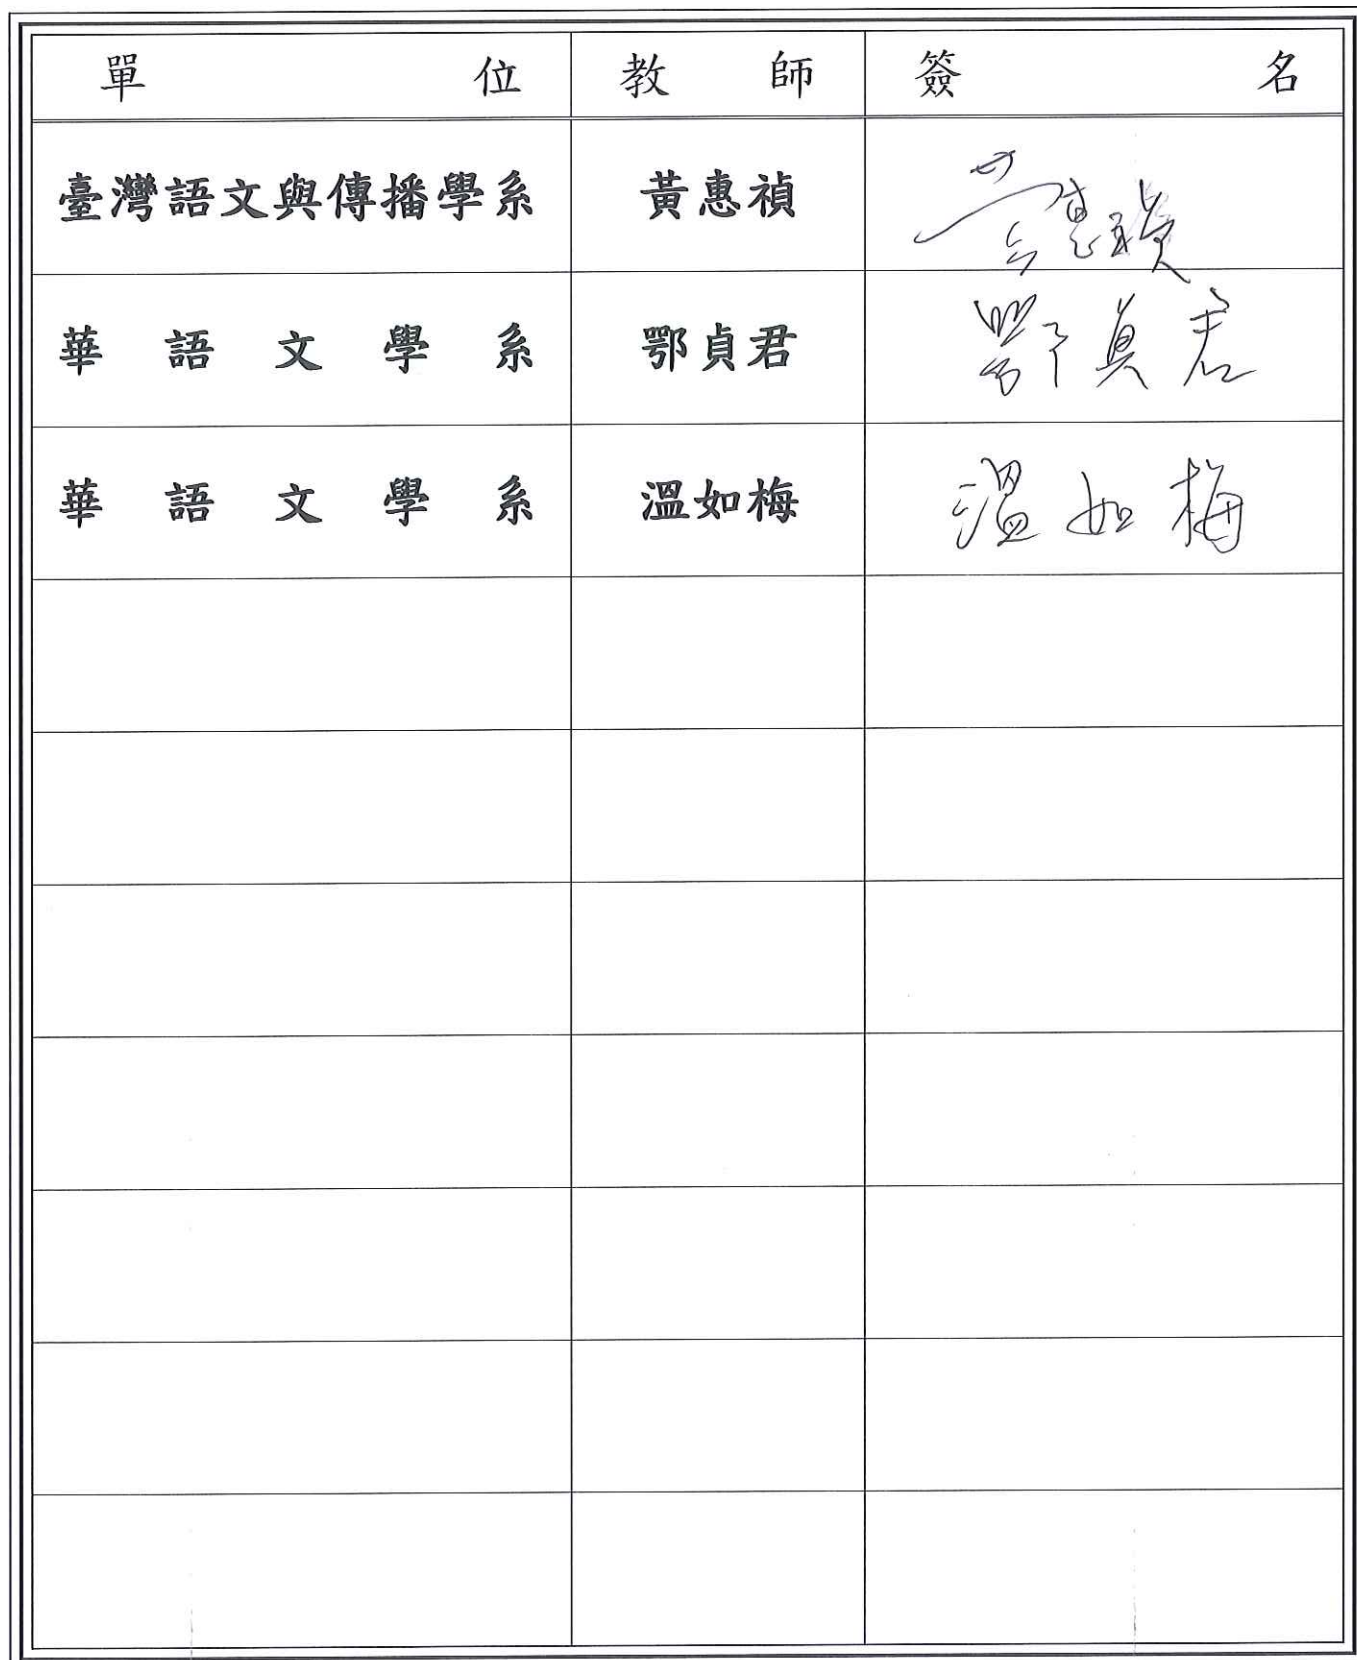 單位 教師 簽名
臺灣語文與傳播學系 黃惠禎 黃惠禎
華語文學系 鄂貞君 鄂貞君
華語文學系 溫如梅 溫如梅